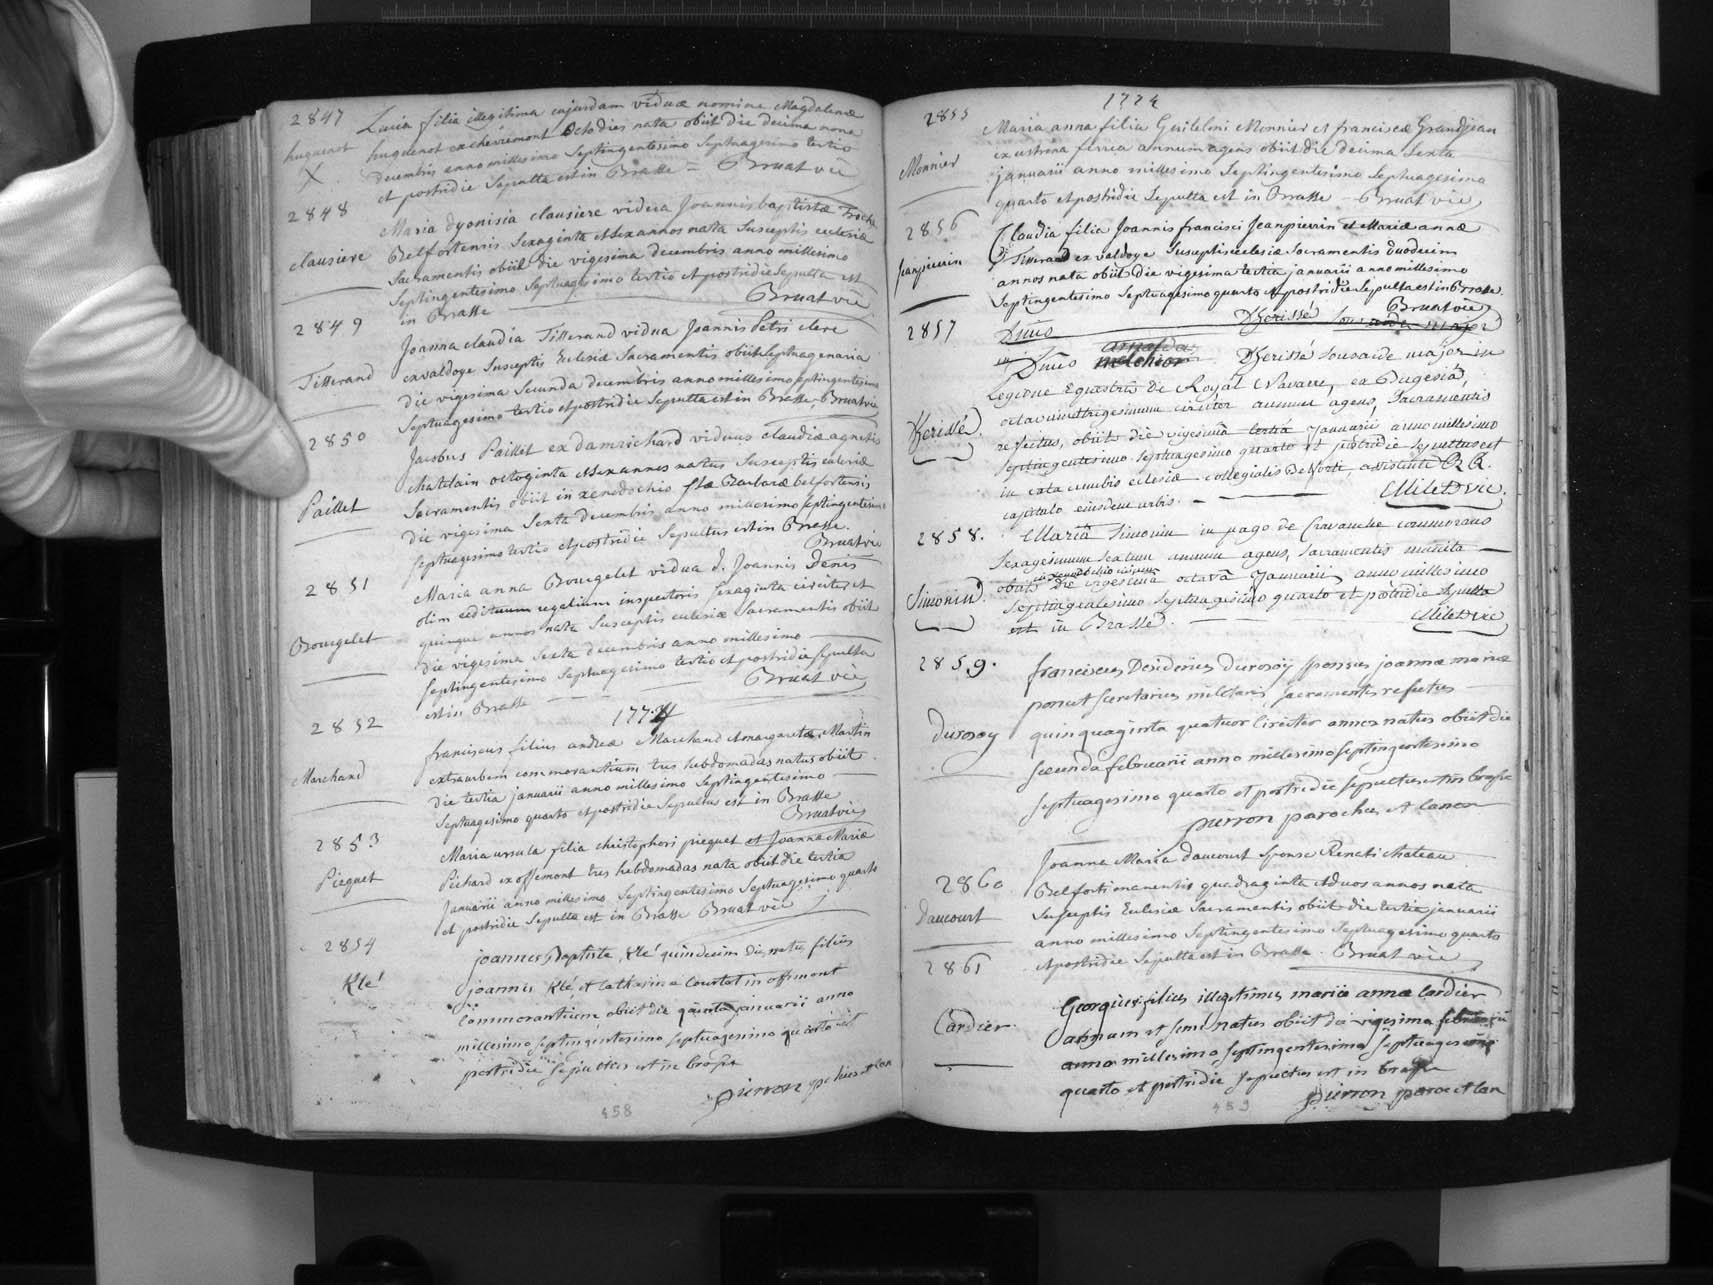 2847
huguenot
X
Lucia filia illegitima cujusdam viduæ nomine Magdalenæ
huguenot ex chévremont octo dies nata obiit die decima nona
decembris anno millesimo Septingentesimo Septuagesimo tertio
et postridie Sepulta est in Brasse = Bruat vic
2848
clausiere
Maria dyonisia clausiere vidua Joannis baptistæ
Belfortensis Sexaginta & sex annos nata Susceptis eclesiæ
Sacramentis obiit die vigesima decembris anno millesimo
Septingentesimo Septuagesimo tertio et postridie Sepulta est
in Brasse
Bruat vic
2849
Titterand
Joanna claudia Titterand vidua Joannis Petri clerc
ex valdoye Susceptis Eclesiæ Sacramentis obiit Septuagenaria
die vigesima Secunda decembris anno millesimo Septingentesimo
Septuagesimo tertio et postridie Sepulta est in Brasse, Bruat vic
2850
Paillet
Jacobus Paillet ex damrichard viduus claudiæ agnetis
chatelain octoginta & sex annos natus Susceptis eclesiæ
Sacramentis obiit in xenodochio Stæ Barbaræ belfortensis
die vigesima Sexta decembris anno millesimo Septingentesimo
Septuagesimo tertio et postridie Sepultus est in Brasse.
Bruat vic
2851
Bourgelet
Maria anna Bourgelet vidua d. Joannis Denis
olim edituum regalium inspectoris Sexaginta circiter et
quinque annos nata Susceptis eclesiæ Sacramentis obiit
die vigesima Sexta decembris anno millesimo
Septingentesimo Septuagesimo tertio et postridie Sepulta
est in Brasse
Bruat vic
1774
2852
Marchand
franciscus filius andreæ Marchand & margaretæ Martin
extra urbem commorantium tres hebdomadas natus obiit
die tertia januarii anno millesimo Septingentesimo
Septuagesimo quarto et postridie Sepultus est in Brasse
Bruat vic
2853
Piequet
Maria ursula filia christophori piequet et Joannæ Mariæ
Pichard ex offemont tres hebdomadas nata obiit die tertia
Januarii anno millesimo Septingentesimo Septuagesimo quarto
et postridie Sepulta est in Brasse Bruat vic
2854
Klé
joannes Baptista Klé quindecim dies natus filius
joannis Klé, et catharina Courtot in offemont
Commorantium obiit die quinta januarii anno
millesimo septingentesimo septuagesimo quarto et
postridie sepultus est in brasse
pierron
458
1774
2855
Monnier
Maria anna filia Guilelmi Monnier et franciscæ Grandjean
ex ustrina ferrea annum agens obiit die decima Sexta
januarii anno millesimo Septingentesimo Septuagesimo
quarto et postridie Sepulta est in Brasse - Bruat vic
2856
jeanpierrin
Claudia filia Joannis francisci Jeanpierrin et Mariæ annæ
Titterand ex valdoye Susceptis eclesiæ Sacramentis duodecim
annos nata obiit die vigesima tertia januarii anno millesimo
Septingentesimo Septuagesimo quarto & postridie Sepulta est in Brasse.
Bruat vic
2857
Dherissé
Dnus Dherissé
Dnus melchior Dherissé Sousaide major in
Legione Equestris de Royal Navarre, ex Bugesia,
octavum trigesimum circiter annum agens, Sacramentis
refectus, obiit die vigesima tertia januarii anno millesimo
septingentesimo septuagesimo quarto et postridie sepultus est
in catacumbis eclesiæ collegialis Belfort, assistente R R.
capitulo ejusdem urbis.
Milet D vic.
2858.
Simonin.
Maria Simonin in pago de Cravanche commorans
sexagesimum sextum annum agens, sacramentis munita
obiit die vigesima octava januarii anno millesimo
Septingentesimo Septuagesimo quarto et postridie sepulta
est in Brasse.
Milet D vic
2859.
durosoy
franciscus Desiderius durosoy sponsus joannæ mariæ
poncet secretarius militaris, sacramentis refectus
quinquaginta quatuor circiter annos natus obiit die
secunda februarii anno millesimo septingentesimo
septuagesimo quarto et postridie sepultus est in brasse
pierron parochus et canon
2860
Daucourt
Joanna Maria daucourt Sponsa Renati chateau
Belforti manentis quadraginta & duos annos nata
Susceptis Eclesiæ Sacramentis obiit die tertia januarii
anno millesimo Septingentesimo Septuagesimo quarto
& postridie Sepulta est in Brasse. Bruat vic
2861
Cardier.
Georgius filius illegitimus mariæ annæ Cardier
annum et semi natus obiit die vigesima
anno millesimo septingentesimo septuagesimo
quarto et postridie sepultus est in brasse
pierron paroc et can
459